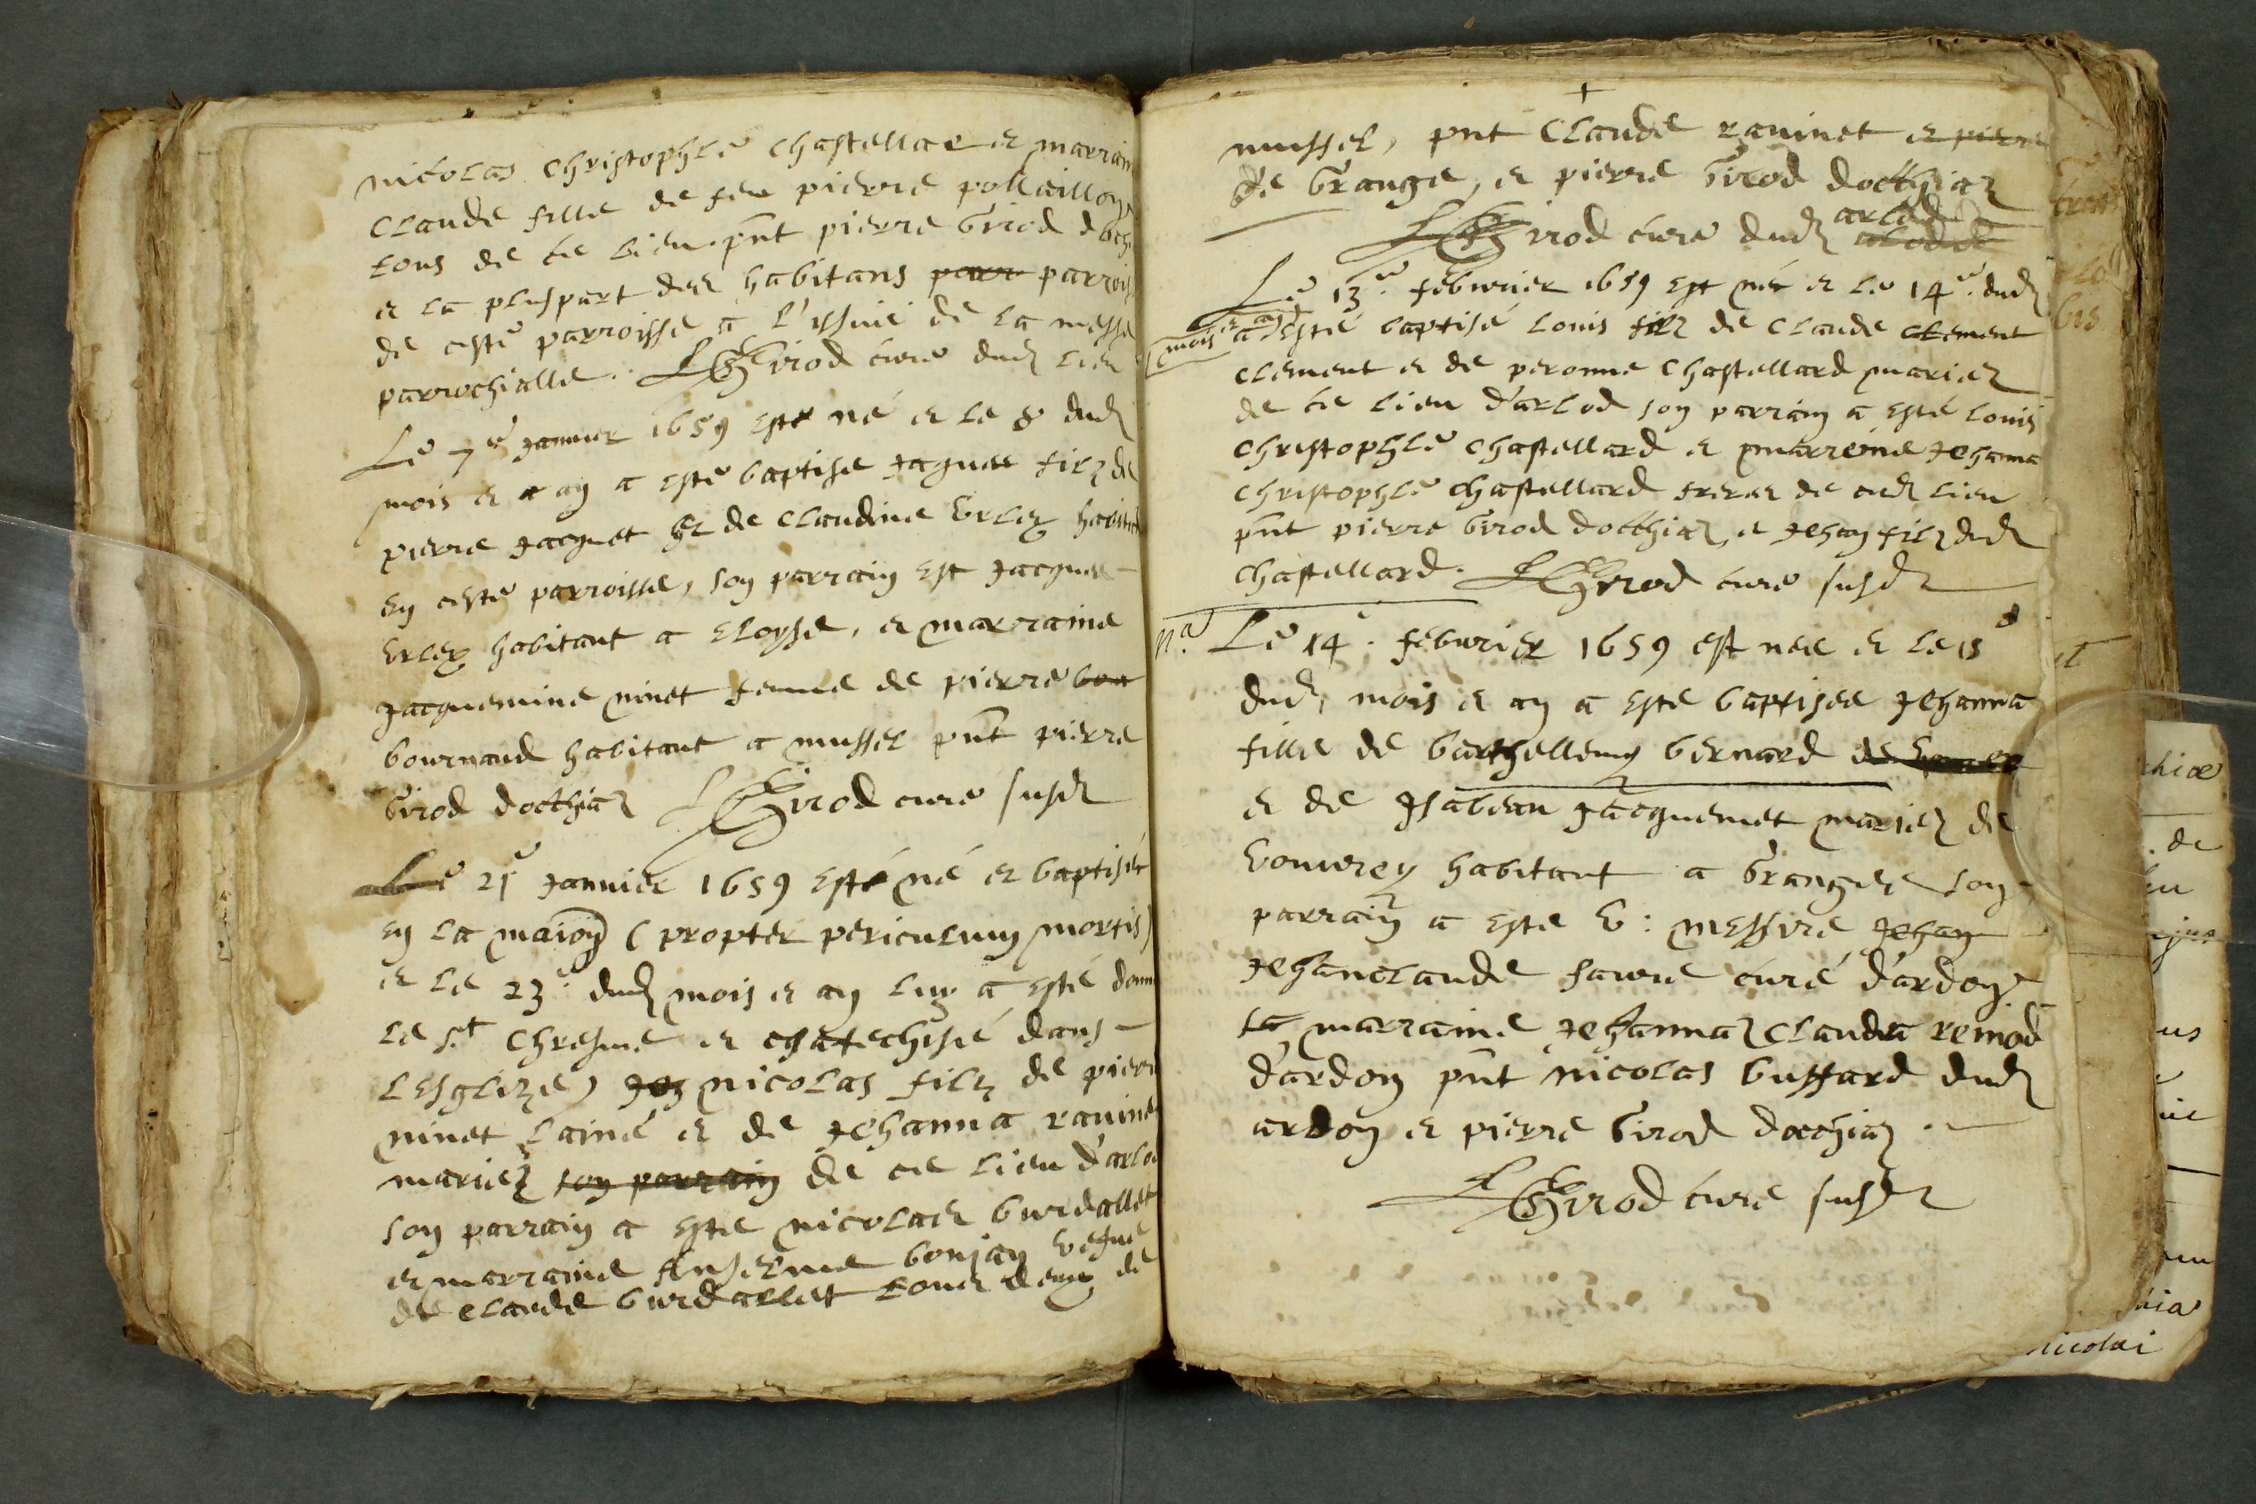 nicolas christophle chastellar et marrain
claude fille de feu pierre polleaillon
tous de ce lieu. pnt pierre Girod d
et la pluspart des habitans parr parrois
de ceste parroisse a l'issuie de la messe
parrochialle. Girod curé dud lieu
Le 7e Janvier 1659 este né et le 8 dud
mois et an a esté baptisé Jaques filz de
pierre Jacquet et de claudine Vrlex habitant
en ceste parroisse, son parrain est Jacques
Vrlex habitant a Eloyse, et marraine
Jacquemine ninet femme de pierre bou
bournand habitant a mussel pnt pierre
Girod docthiaz Girod curé susd
Le 21e Janvier 1659 esté né et baptisé
en la maion (propter periculum mortis)
et le 23e dud mois et an luy a esté donn
le st chresme et chatechisé dans
lesglize) nicolas filz de pierr
ninet lainé et de Jehanna ravine
mariez son parrain de ce lieu d'arlo
son parrain a este nicolas burdallet
et marraine Anserme bonjan vefue
de claude burdallet tous deux de
mussel, pnt Claude ravinet et pierre
de Grange, et pierre Girod docthiaz
Girod curé dud arlod
Le 13e febvrier 1659 est né et le 14e dud
mois et an a esté baptisé Louis filz de Claude clement
clement et de peronne chastellard mariez
de ce lieu d'arlod son parrain a esté louis
christophle chastellard et marreine Jehanna
christophle chastellard freres de cud lieu
pnt pierre Girod docthiaz, et Jehan filz dud
chastellard. Girod curé susd
Na. Le 14e. febvrier 1659 est née et le 15
dud mois et an a este baptisee Jehanna
fille de barthellemy bernard de
et de Isabeau Jacquemet mariez de
Vouvrey habitant a Granges son
parrain a este V: messire Jehan
Jehanclaude favre curé d'ardon
sa marraine Jehanna Claudaz remod
d'ardon pnt nicolas bussard dud
ardon et pierre Girod docthiaz.
Girod curé susd